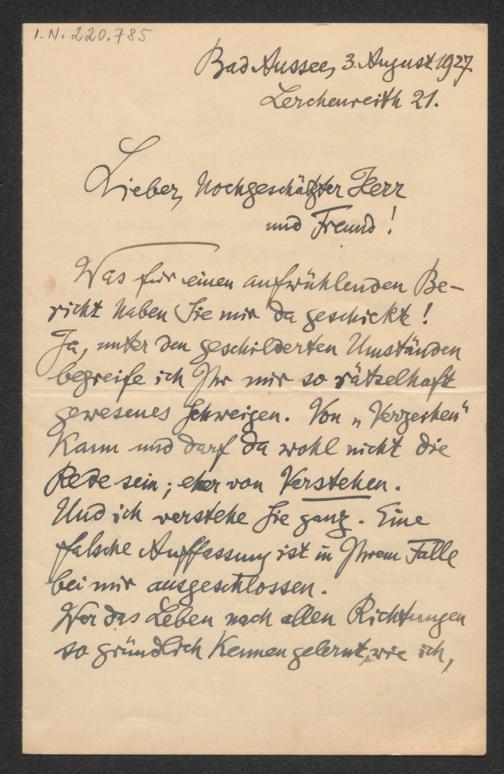 I.N. 220.785
Bad Aussee, 3. August 1927
Lerchenreith 21.
Lieber, hochgeschätzter Herr
und Freund!
Was für einen aufwühlenden Be-
richt haben Sie mir da geschickt!
Ja, unter den geschilderten Umständen
begreife ich Ihr mir so rätselhaft
gewesenes Schweigen. Von „Verzeihen"
kann und darf da wohl nicht die
Rede sein; eher von Verstehen.
Und ich verstehe Sie ganz. Eine
falsche Auffassung ist in Ihrem Falle
bei mir ausgeschlossen.
Wer das Leben nach allen Richtungen
so gründlich kennen gelernt, wie ich,